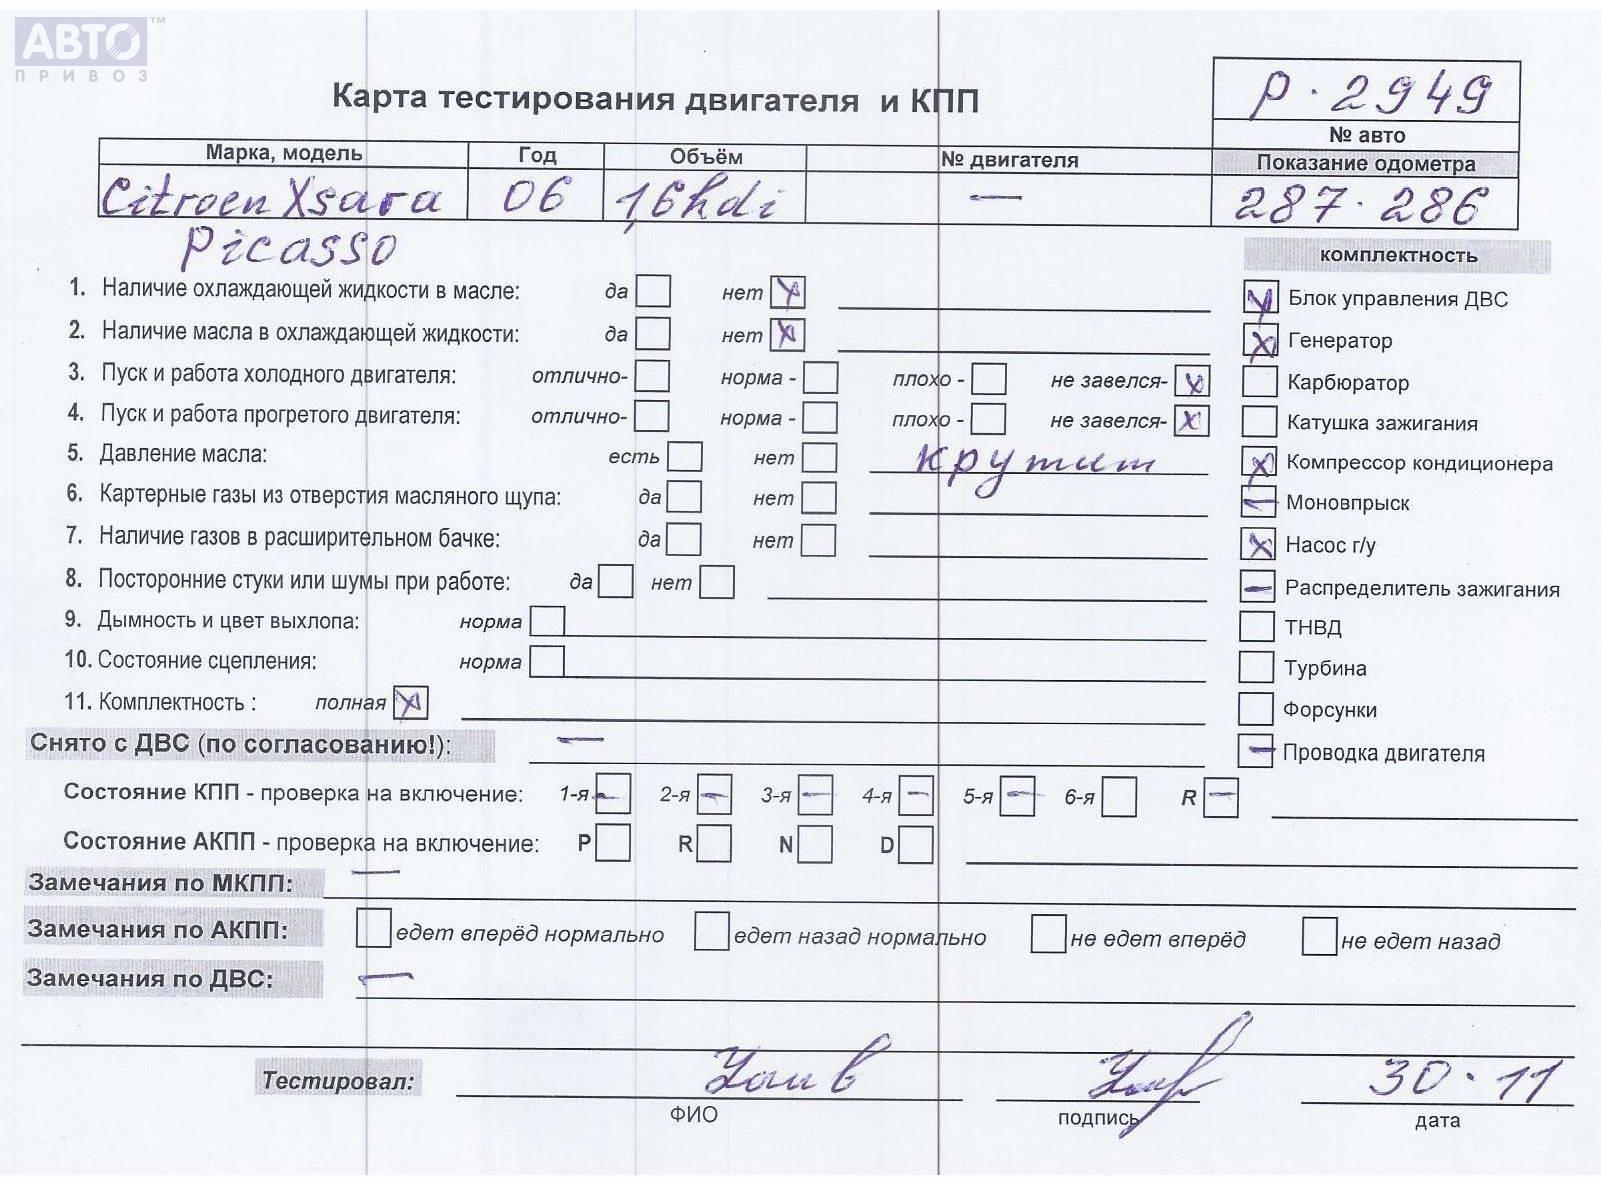 АВТО™
ПРИВОЗ
Карта тестирования двигателя и КПП
P·2949
№ авто
Марка, модель Год Объём № двигателя Показание одометра
Citroen Xsara 06 1,6hdi — 287·286
Picasso
комплектность
1. Наличие охлаждающей жидкости в масле: да нет X
Блок управления ДВС
2. Наличие масла в охлаждающей жидкости: да нет X
Генератор
3. Пуск и работа холодного двигателя: отлично- норма - плохо - не завелся- X
Карбюратор
4. Пуск и работа прогретого двигателя: отлично- норма - плохо - не завелся- X
Катушка зажигания
5. Давление масла: есть нет крутит
Компрессор кондиционера
6. Картерные газы из отверстия масляного щупа: да нет
Моновпрыск
7. Наличие газов в расширительном бачке: да нет
Насос г/у
8. Посторонние стуки или шумы при работе: да нет
Распределитель зажигания
9. Дымность и цвет выхлопа: норма
ТНВД
10. Состояние сцепления: норма
Турбина
11. Комплектность : полная X
Форсунки
Снято с ДВС (по согласованию!): —
Проводка двигателя
Состояние КПП - проверка на включение: 1-я 2-я 3-я 4-я 5-я 6-я R
Состояние АКПП - проверка на включение: P R N D
Замечания по МКПП: —
Замечания по АКПП: едет вперёд нормально едет назад нормально не едет вперёд не едет назад
Замечания по ДВС: —
Тестировал: 30·11
ФИО подпись дата